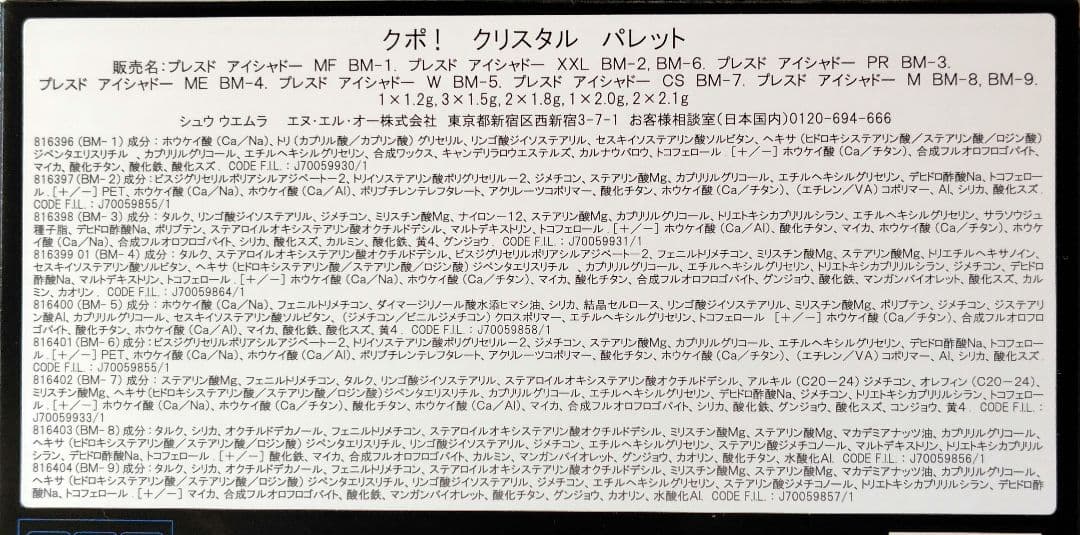 クポ！ クリスタル パレット
販売名：プレスド アイシャドー MF BM-1、プレスド アイシャドー XXL BM-2, BM-6、プレスド アイシャドー PR BM-3、
プレスド アイシャドー ME BM-4、プレスド アイシャドー W BM-5、プレスド アイシャドー CS BM-7、プレスド アイシャドー M BM-8, BM-9、
1×1.2g, 3×1.5g, 2×1.8g, 1×2.0g, 2×2.1g
シュウ ウエムラ エヌ・エル・オー株式会社 東京都新宿区西新宿3-7-1 お客様相談室(日本国内)0120-694-666
816396 (BM-1) 成分：ホウケイ酸(Ca/Na)、トリ(カプリル酸/カプリン酸)グリセリル、リンゴ酸ジイソステアリル、セスキイソステアリン酸ソルビタン、ヘキサ(ヒドロキシステアリン酸/ステアリン酸/ロジン酸)
ジペンタエリスリチル、カプリルグリコール、エチルヘキシルグリセリン、合成ワックス、キャンデリラロウエステルズ、カルナウバロウ、トコフェロール.[+/-]ホウケイ酸(Ca/チタン)、合成フルオロフロゴパイト、
マイカ、酸化チタン、酸化鉄、酸化スズ. CODE F.I.L.：J70059930/1
816397 (BM-2) 成分：ビスジグリセリルポリアシルアジペート-2、トリイソステアリン酸ポリグリセリル-2、ジメチコン、ステアリン酸Mg、カプリルグリコール、エチルヘキシルグリセリン、デヒドロ酢酸Na、トコフェロー
ル.[+/-]PET、ホウケイ酸(Ca/Na)、ホウケイ酸(Ca/Al)、ポリブチレンテレフタレート、アクリレーツコポリマー、酸化チタン、ホウケイ酸(Ca/チタン)、(エチレン/VA)コポリマー、Al、シリカ、酸化スズ.
CODE F.I.L.：J70059855/1
816398 (BM-3) 成分：タルク、リンゴ酸ジイソステアリル、ジメチコン、ミリスチン酸Mg、ナイロン-12、ステアリン酸Mg、カプリリルグリコール、トリエトキシカプリリルシラン、エチルヘキシルグリセリン、サラソウジュ
種子脂、デヒドロ酢酸Na、ポリブテン、ステアロイルオキシステアリン酸オクチルドデシル、マルトデキストリン、トコフェロール.[+/-]ホウケイ酸(Ca/Al)、酸化チタン、マイカ、ホウケイ酸(Ca/チタン)、ホウケ
イ酸(Ca/Na)、合成フルオロフロゴパイト、シリカ、酸化スズ、カルミン、酸化鉄、黄4、グンジョウ. CODE F.I.L.：J70059931/1
816399 01 (BM-4) 成分：タルク、ステアロイルオキシステアリン酸オクチルドデシル、ビスジグリセリルポリアシルアジペート-2、フェニルトリメチコン、ミリスチン酸Mg、ステアリン酸Mg、トリエチルヘキサノイン、
セスキイソステアリン酸ソルビタン、ヘキサ(ヒドロキシステアリン酸/ステアリン酸/ロジン酸)ジペンタエリスリチル、カプリルグリコール、エチルヘキシルグリセリン、トリエトキシカプリリルシラン、ジメチコン、デヒドロ
酢酸Na、マルトデキストリン、トコフェロール.[+/-]ホウケイ酸(Ca/Al)、酸化チタン、マイカ、酸化チタン、合成フルオロフロゴパイト、グンジョウ、酸化鉄、マンガンバイオレット、酸化スズ、カル
ミン、カオリン. CODE F.I.L.：J70059864/1
816400 (BM-5) 成分：ホウケイ酸(Ca/Na)、フェニルトリメチコン、ダイマージリノール酸水添ヒマシ油、シリカ、結晶セルロース、リンゴ酸ジイソステアリル、ミリスチン酸Mg、ポリブテン、ジメチコン、ジステアリ
ン酸Al、カプリルグリコール、セスキイソステアリン酸ソルビタン、(ジメチコン/ビニルジメチコン)クロスポリマー、エチルヘキシルグリセリン、トコフェロール.[+/-]ホウケイ酸(Ca/チタン)、合成フルオロフロ
ゴパイト、酸化チタン、ホウケイ酸(Ca/Al)、マイカ、酸化鉄、酸化スズ、黄4. CODE F.I.L.：J70059858/1
816401 (BM-6) 成分：ビスジグリセリルポリアシルアジペート-2、トリイソステアリン酸ポリグリセリル-2、ジメチコン、ステアリン酸Mg、カプリルグリコール、エチルヘキシルグリセリン、デヒドロ酢酸Na、トコフェロー
ル.[+/-]PET、ホウケイ酸(Ca/Na)、ホウケイ酸(Ca/Al)、ポリブチレンテレフタレート、アクリレーツコポリマー、酸化チタン、ホウケイ酸(Ca/チタン)、(エチレン/VA)コポリマー、Al、シリカ、酸化スズ.
CODE F.I.L.：J70059855/1
816402 (BM-7) 成分：ステアリン酸Mg、フェニルトリメチコン、タルク、リンゴ酸ジイソステアリル、ステアロイルオキシステアリン酸オクチルドデシル、アルキル(C20-24)ジメチコン、オレフィン(C20-24)、
ミリスチン酸Mg、ヘキサ(ヒドロキシステアリン酸/ステアリン酸/ロジン酸)ジペンタエリスリチル、カプリルグリコール、エチルヘキシルグリセリン、デヒドロ酢酸Na、ジメチコン、トリエトキシカプリリルシラン、トコフェロー
ル.[+/-]ホウケイ酸(Ca/Na)、ホウケイ酸(Ca/チタン)、酸化チタン、ホウケイ酸(Ca/Al)、マイカ、合成フルオロフロゴパイト、シリカ、酸化鉄、グンジョウ、酸化スズ、コンジョウ、黄4. CODE F.I.L.：
J70059933/1
816403 (BM-8) 成分：タルク、シリカ、オクチルドデカノール、フェニルトリメチコン、ステアロイルオキシステアリン酸オクチルドデシル、ミリスチン酸Mg、ステアリン酸Mg、マカデミアナッツ油、カプリリルグリコール、
ヘキサ(ヒドロキシステアリン酸/ステアリン酸/ロジン酸)ジペンタエリスリチル、リンゴ酸ジイソステアリル、ジメチコン、エチルヘキシルグリセリン、ステアリン酸ジメチコノール、マルトデキストリン、トリエトキシカプリリル
シラン、デヒドロ酢酸Na、トコフェロール.[+/-]酸化鉄、マイカ、合成フルオロフロゴパイト、カルミン、マンガンバイオレット、グンジョウ、カオリン、酸化チタン、水酸化Al. CODE F.I.L.：J70059856/1
816404 (BM-9) 成分：タルク、シリカ、オクチルドデカノール、フェニルトリメチコン、ステアロイルオキシステアリン酸オクチルドデシル、ミリスチン酸Mg、ステアリン酸Mg、マカデミアナッツ油、カプリリルグリコール、
ヘキサ(ヒドロキシステアリン酸/ステアリン酸/ロジン酸)ジペンタエリスリチル、リンゴ酸ジイソステアリル、ジメチコン、エチルヘキシルグリセリン、ステアリン酸ジメチコノール、マルトデキストリン、トリエトキシカプリリルシラン、デヒドロ酢
酸Na、トコフェロール.[+/-]マイカ、合成フルオロフロゴパイト、酸化鉄、マンガンバイオレット、酸化チタン、グンジョウ、カオリン、水酸化Al. CODE F.I.L.：J70059857/1